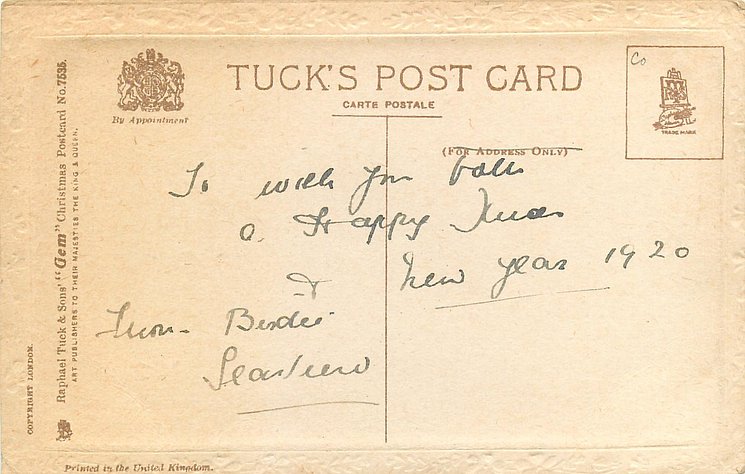 TUCK'S POST CARD
CARTE POSTALE
By Appointment
(FOR ADDRESS ONLY)
Co
TRADE MARK
To wish you both
a Happy Xmas
& New Year 1920
From Birdie
Seaview
Raphael Tuck & Sons' "Gem" Christmas Postcard No. 7535.
ART PUBLISHERS TO THEIR MAJESTIES THE KING & QUEEN.
COPYRIGHT LONDON.
Printed in the United Kingdom.